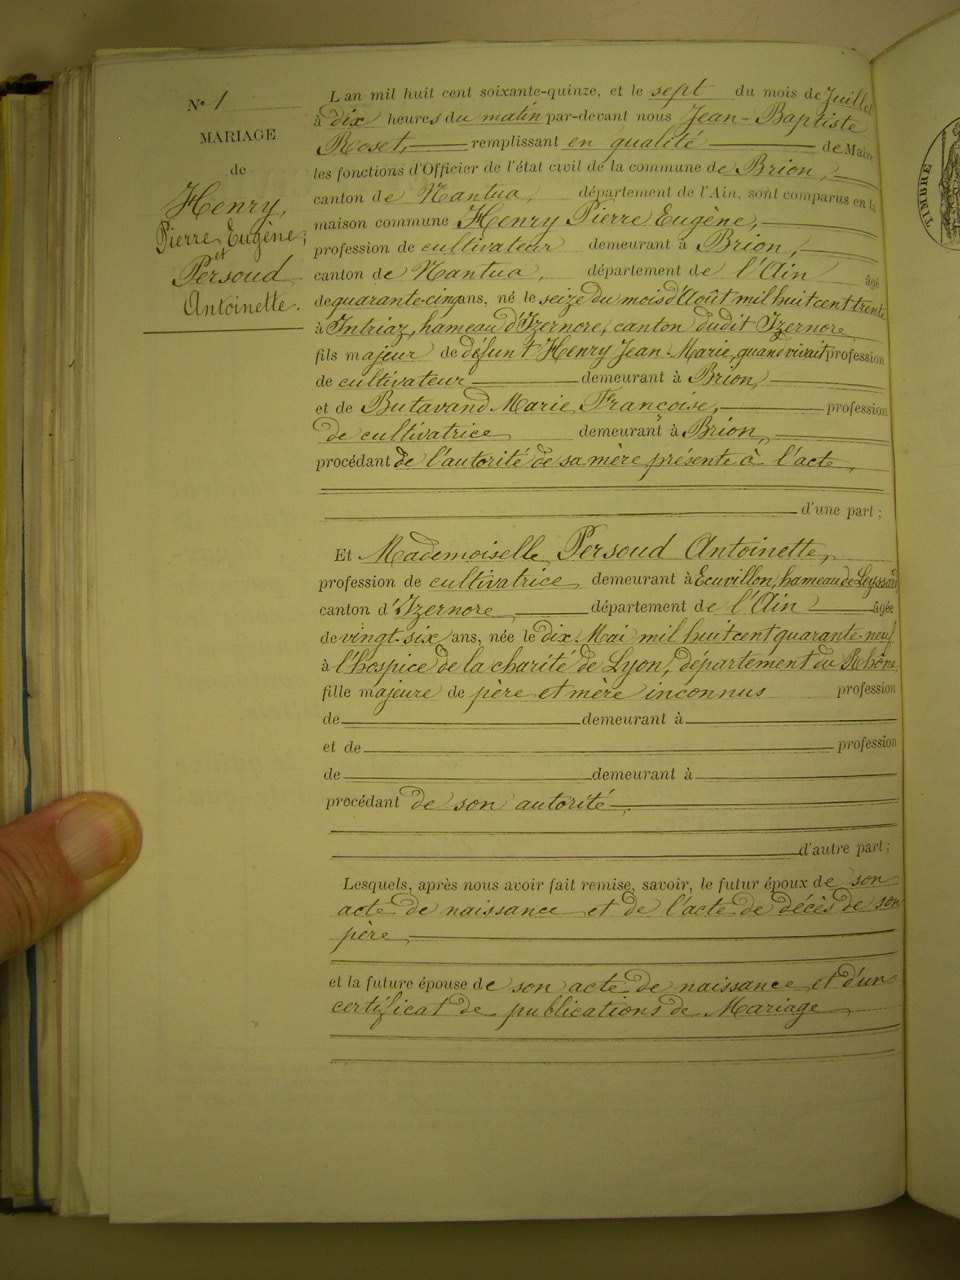 N° 1
MARIAGE
de
Henry,
Pierre Eugène;
et
Persoud
Antoinette.
L an mil huit cent soixante-quinze, et le sept du mois de Juillet
à dix heures du matin par-devant nous Jean-Baptiste
Roset, remplissant en qualité de Maire
les fonctions d'Officier de l'état civil de la commune de Brion,
canton de Nantua, département de l'Ain, sont comparus en la
maison commune Henry Pierre Eugène,
profession de cultivateur demeurant à Brion,
canton de Nantua, département de l'Ain âgé
de quarante-cinq ans, né le seize du mois d'Août mil huit cent trente
à Intriaz, hameau d'Izernore, canton dudit Izernore,
fils majeur de défunt Henry Jean-Marie, quand vivait profession
de cultivateur demeurant à Brion,
et de Butavand Marie Françoise, profession
de cultivatrice demeurant à Brion,
procédant de l'autorité de sa mère présente à l'acte,
d'une part;
Et Mademoiselle Persoud Antoinette,
profession de cultivatrice demeurant à Ecuvillon, hameau de Leyssard
canton d'Izernore, département de l'Ain âgée
de vingt-six ans, née le dix Mai mil huit cent quarante-neuf
à l'hospice de la charité de Lyon, département du Rhône
fille majeure de père et mère inconnus profession
de demeurant à
et de profession
de demeurant à
procédant de son autorité,
d'autre part;
Lesquels, après nous avoir fait remise, savoir, le futur époux de son
acte de naissance et de l'acte de décès de son
père,
et la future épouse de son acte de naissance et d'un
certificat de publications de Mariage
TIMBRE